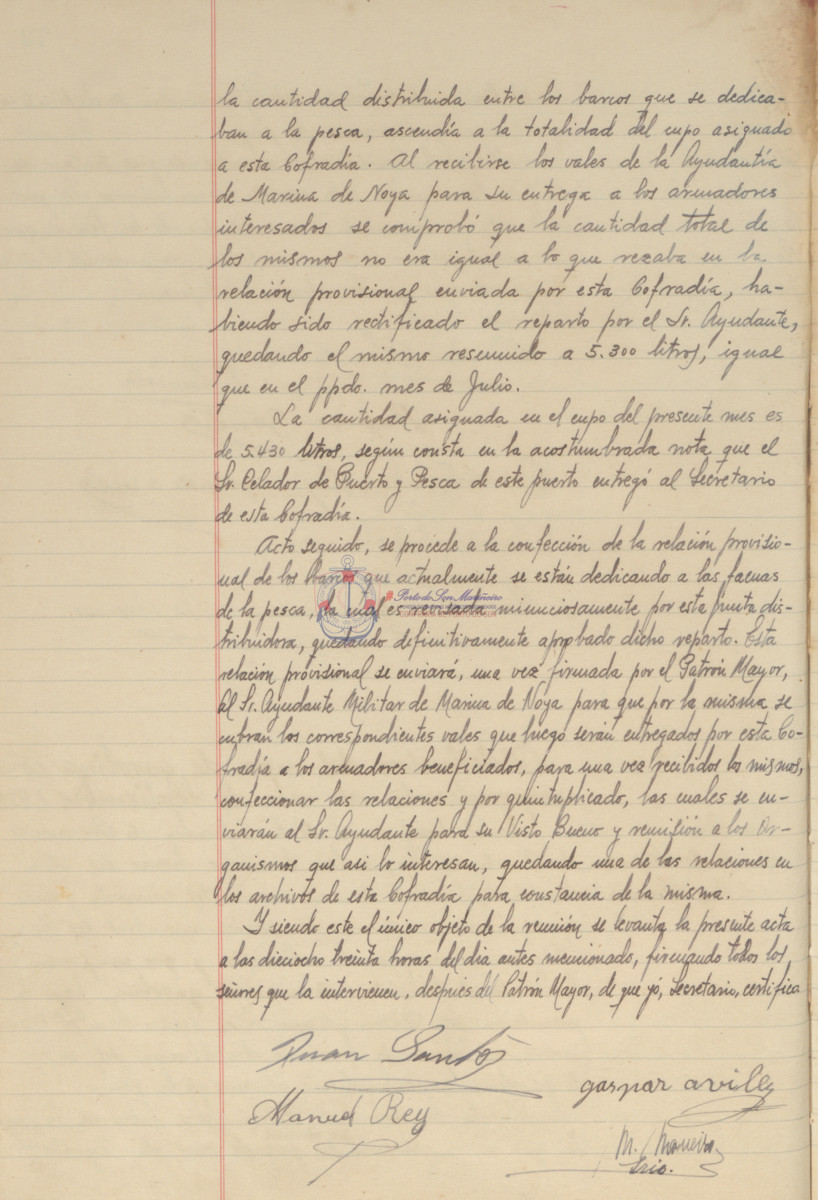 la cantidad distribuida entre los barcos que se dedica-
ban a la pesca, ascendía a la totalidad del cupo asignado
a esta Cofradía. Al recibirse los vales de la Ayudantía
de Marina de Noya para su entrega a los armadores
interesados se comprobó que la cantidad total de
los mismos no era igual a lo que rezaba en la
relación provisional enviada por esta Cofradía, ha-
biendo sido rectificado el reparto por el Sr. Ayudante,
quedando el mismo resumido a 5.300 litros, igual
que en el ppdo. mes de Julio.
La cantidad asignada en el cupo del presente mes es
de 5.430 litros, según consta en la acostumbrada nota que el
Sr. Celador de Puerto y Pesca de este puerto entregó al Secretario
de esta Cofradía.
Acto seguido, se procede a la confección de la relación provisio-
nal de los barcos que actualmente se están dedicando a las faenas
de la pesca, la cual es revisada minuciosamente por esta Junta dis-
Porto do Son Mariñeiro
tribuidora, quedando definitivamente aprobado dicho reparto. Esta
relación provisional se enviará, una vez firmada por el Patrón Mayor,
al Sr. Ayudante Militar de Marina de Noya para que por la misma se
cubran los correspondientes vales que luego serán entregados por esta Co-
fradía a los armadores beneficiados, para una vez recibidos los mismos,
confeccionar las relaciones y por quintuplicado, las cuales se en-
viarán al Sr. Ayudante para su Visto Bueno y remisión a los Or-
ganismos que asi lo interesan, quedando una de las relaciones en
los archivos de esta Cofradía para constancia de la misma.
Y siendo este el único objeto de la reunión se levanta la presente acta
a las dieciocho treinta horas del dia antes mencionado, firmando todos los
señores que la intervienen, después del Patrón Mayor, de que yó, Secretario, certifica
Juan Santos
gaspar aviles
Manuel Rey
M.
Srio.